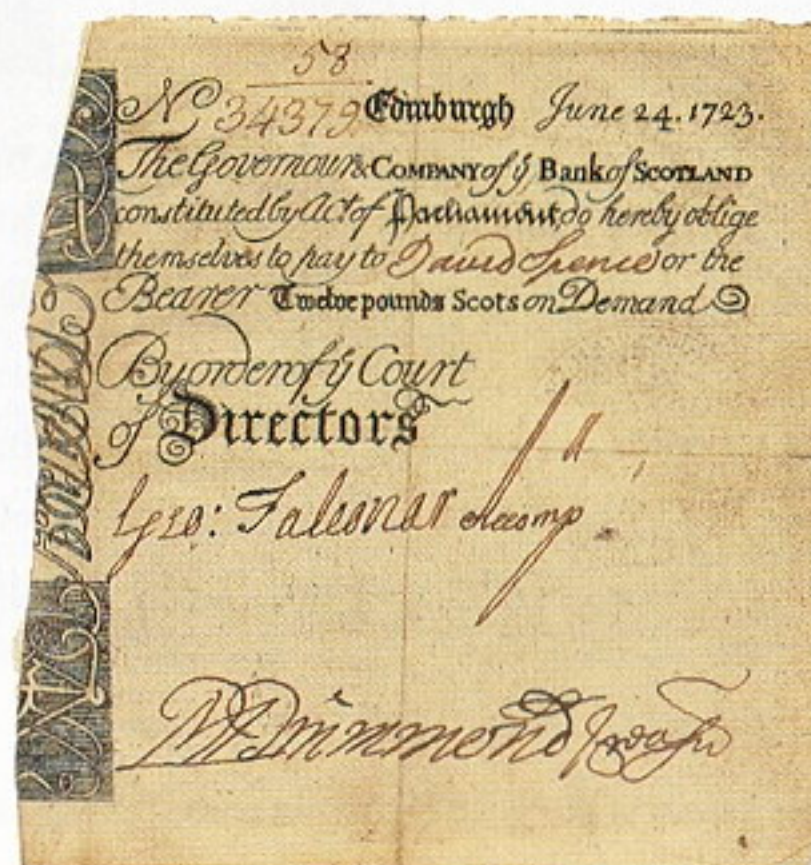 58
No 34379 Edinburgh June 24. 1723.
The Governour & COMPANY of ÿ Bank of SCOTLAND
constituted by Act of Parliament, do hereby oblige
themselves to pay to David Spence or the
Bearer Twelve pounds Scots on Demand
By order of ÿ Court
of Directors
Geo: Falconar Accomp
Drummond